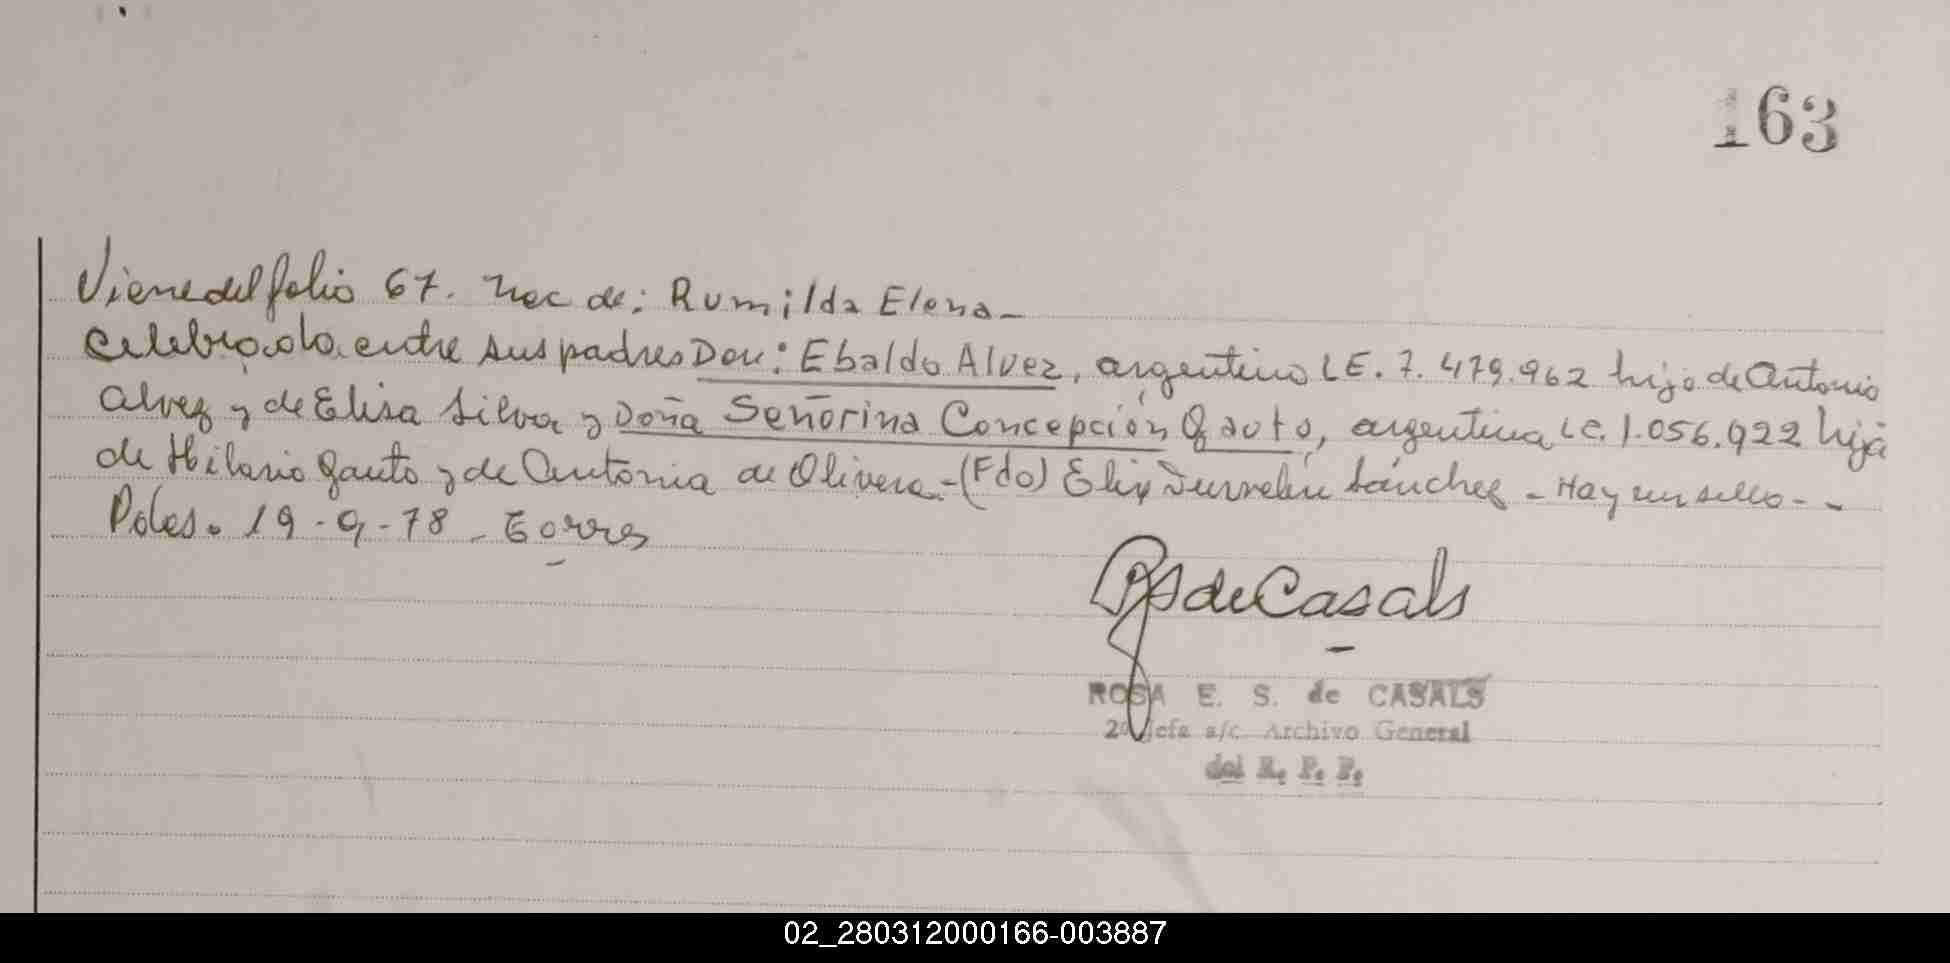 163
Viene del folio 67. Nac de: Rumilda Elena-
Celebrado entre sus padres Don: Ebaldo Alvez, argentino LE. 7.479.962 hijo de Antonio
Alvez y de Elisa Silva y Doña Señorina Concepción Gauto, argentina LC. 1.056.922 hija
de Hilario Gauto y de Antonia de Olivera.-(Fdo) Sánchez - Hay un sello--
Pdas. 19-9-78 - Torres
RSdeCasals
ROSA E. S. de CASALS
2º Jefa a/c. Archivo General
del R. P. P.
02_280312000166-003887